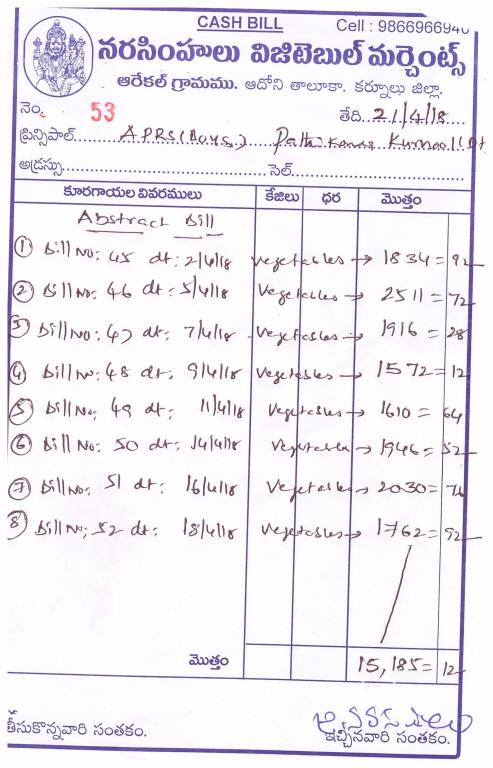 CASH BILL Cell : 9866966940
నరసింహులు విజిటెబుల్ మర్చెంట్స్
ఆరేకల్ గ్రామము. ఆదోని తాలూకా. కర్నూలు జిల్లా.
నెం. 53 తేది..21/4/18
ప్రిన్సిపాల్.....APRS (Boys.) Kurnool Dt
అడ్రస్సు.....సెల్.....
కూరగాయల వివరములు కేజిలు ధర మొత్తం
Abstract Bill
① Bill No: 45 dt: 2/4/18 vegetables → 1834 = 92
② Bill No: 46 dt: 5/4/18 vegetables → 2511 = 72
③ Bill No: 47 dt: 7/4/18 vegetables → 1916 = 28
④ Bill No: 48 dt: 9/4/18 vegetables → 1572 = 12
⑤ Bill No: 49 dt: 11/4/18 vegetables → 1610 = 64
⑥ Bill No: 50 dt: 14/4/18 vegetables → 1946 = 52
⑦ Bill No: 51 dt: 16/4/18 vegetables → 2030 =
⑧ Bill No: 52 dt: 18/4/18 vegetables → 1762 = 92
మొత్తం 15,185 = 12
తీసుకొన్నవారి సంతకం. ఇచ్చినవారి సంతకం.